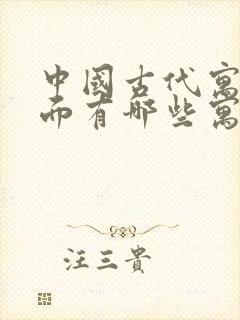 中國古代寓
而有哪些寓
汪三貴